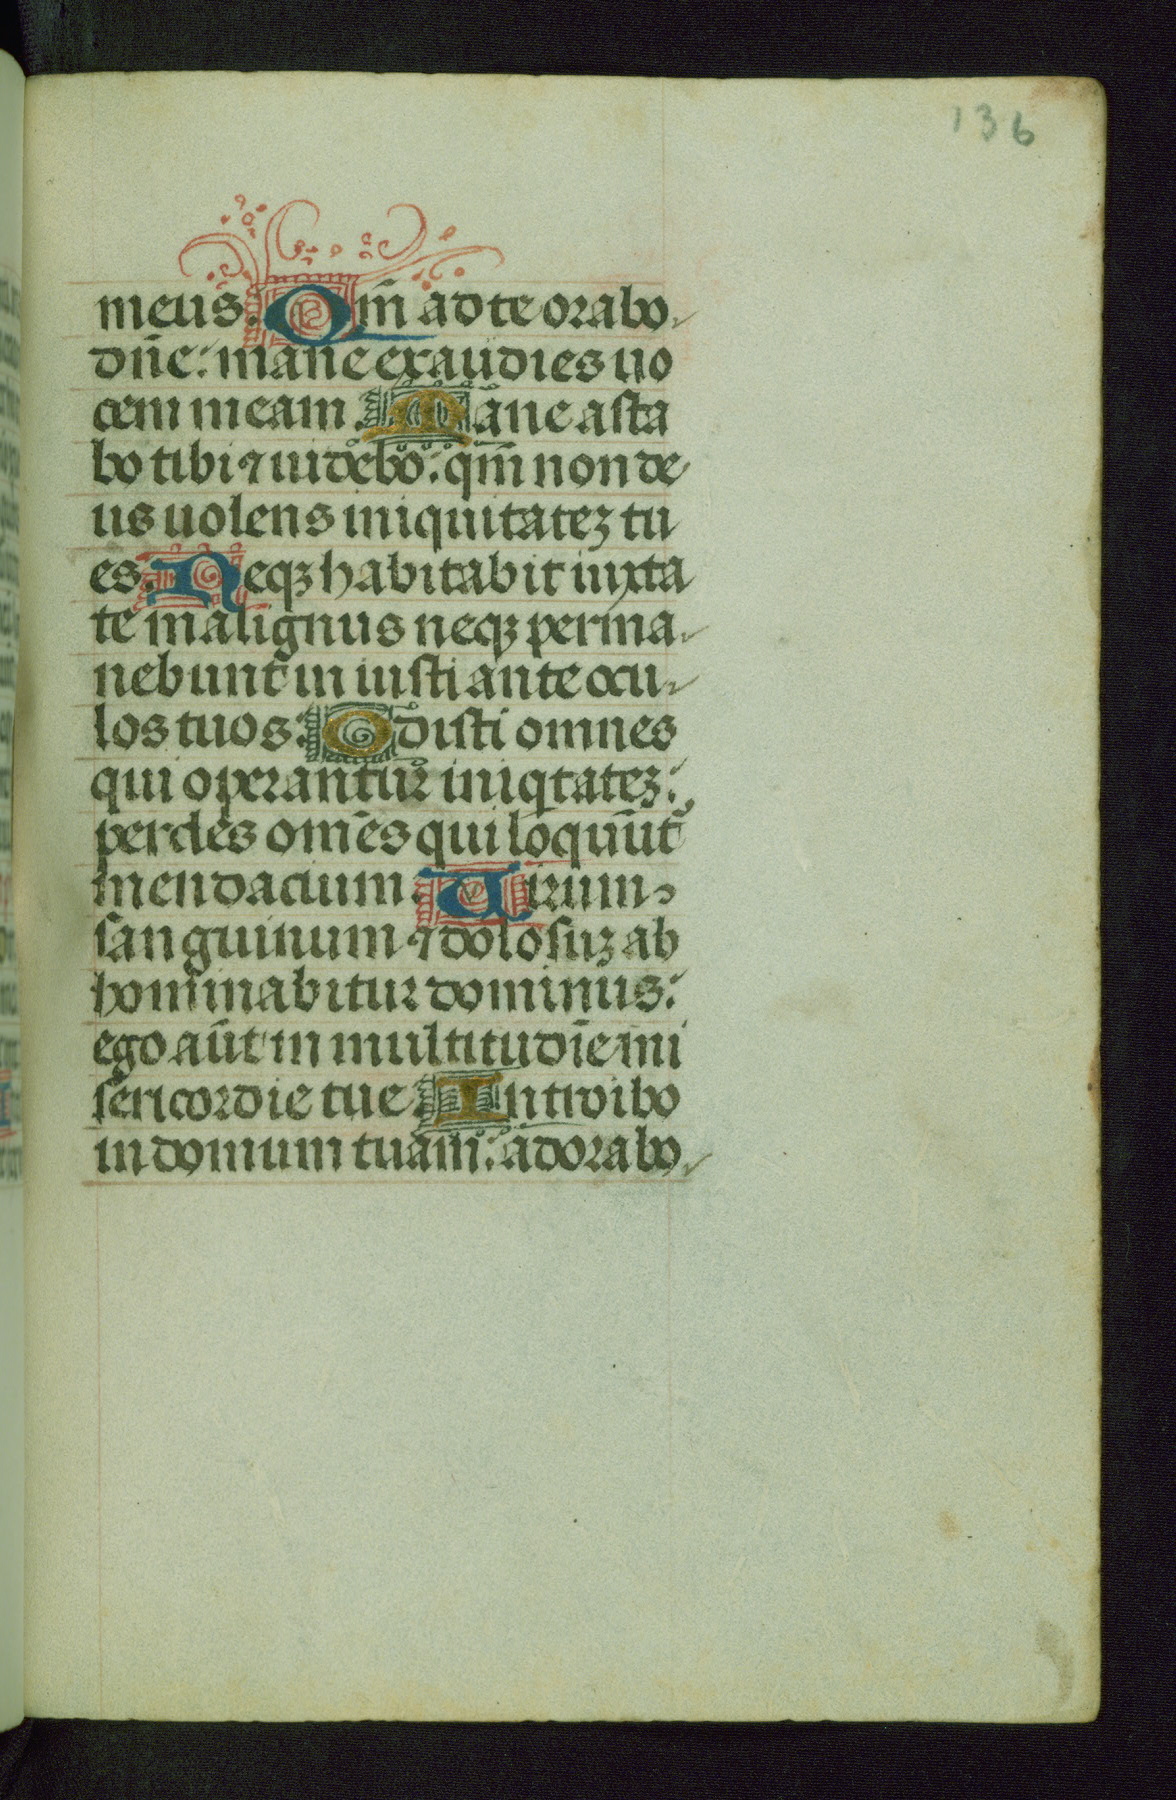 136
meus. Qm̄ ad te orabo
dn̄e: mane exaudies uo
cem meam. Mane asta
bo tibi ⁊ uidebo: qm̄ non de
us uolens iniquitatez tu
es. Neqꝫ habitabit iuxta
te malignus neqꝫ perma
nebunt̄ in iusti ante ocu
los tuos: Odisti omnes
qui operantur iniqtatez:
perdes om̄es qui loquūt̄
mendacium. Uirum
sanguinum ⁊ dolosuꝫ ab
hominabitur dominus:
ego aūt in multitudīe mi
sericordie tue. Introibo
in domum tuam: adorabo